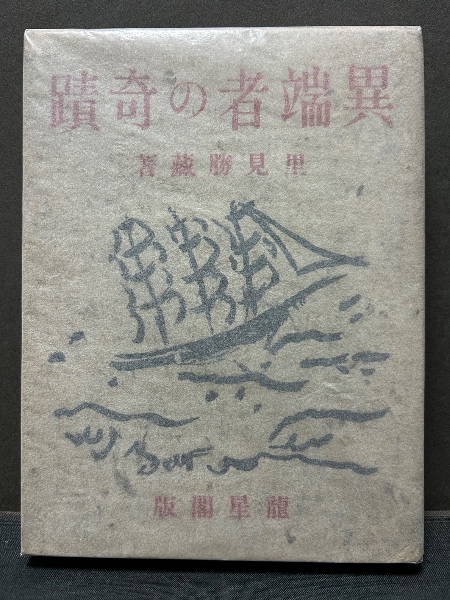 異端者の奇蹟
里見勝蔵著
龍星閣版